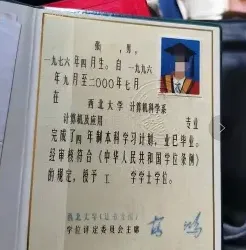 张 男,
一九七六年四月生。自一九九六
年九月至二000年七月
在 西北大学 计算机科学系
计算机及应用 专业
完成了四年制本科学习计划,业已毕业。
经审核符合《中华人民共和国学位条例》
的规定,授予 工 学学士学位。
西北大学
学位评定委员会主席